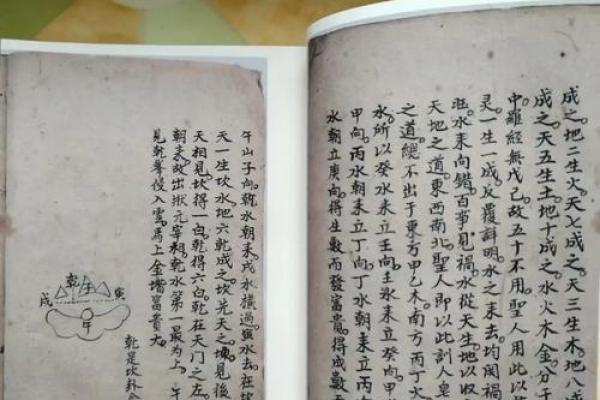 成之。地二生火。天七成之。天三生木。地八成
成之。天五生土。地十成之。水火木金。分于
中。羅經無戊己。故五十不用。聖人用此以
灵。一生一成。反覆詳明。水之来去。均閱禍
旺水来向錯。百事見禍。水從天生。地以收
天地之道。東西南北。聖人即以此訓人。
之道。總不出于東方甲乙木。南方丙丁火
水。所以癸水来立壬向。壬水来立癸向。甲
甲向。丙水朝来立丁向。丁水朝来立丙
水朝立庚向。得生數而發富貴。得成數
午山子向。乾水朝来。戌水過。寅水去。在坎
天一生坎水。地六乾成之。坎先天之坤。見後
天相見。坎得一白。乾得六白。乾在天門之左
朝来。故出狀元宰相。乾水第一最為上。午
見乾峯侵入雲。馬上金堦富貴大。
寅
乾
戌
午
乾是坎卦